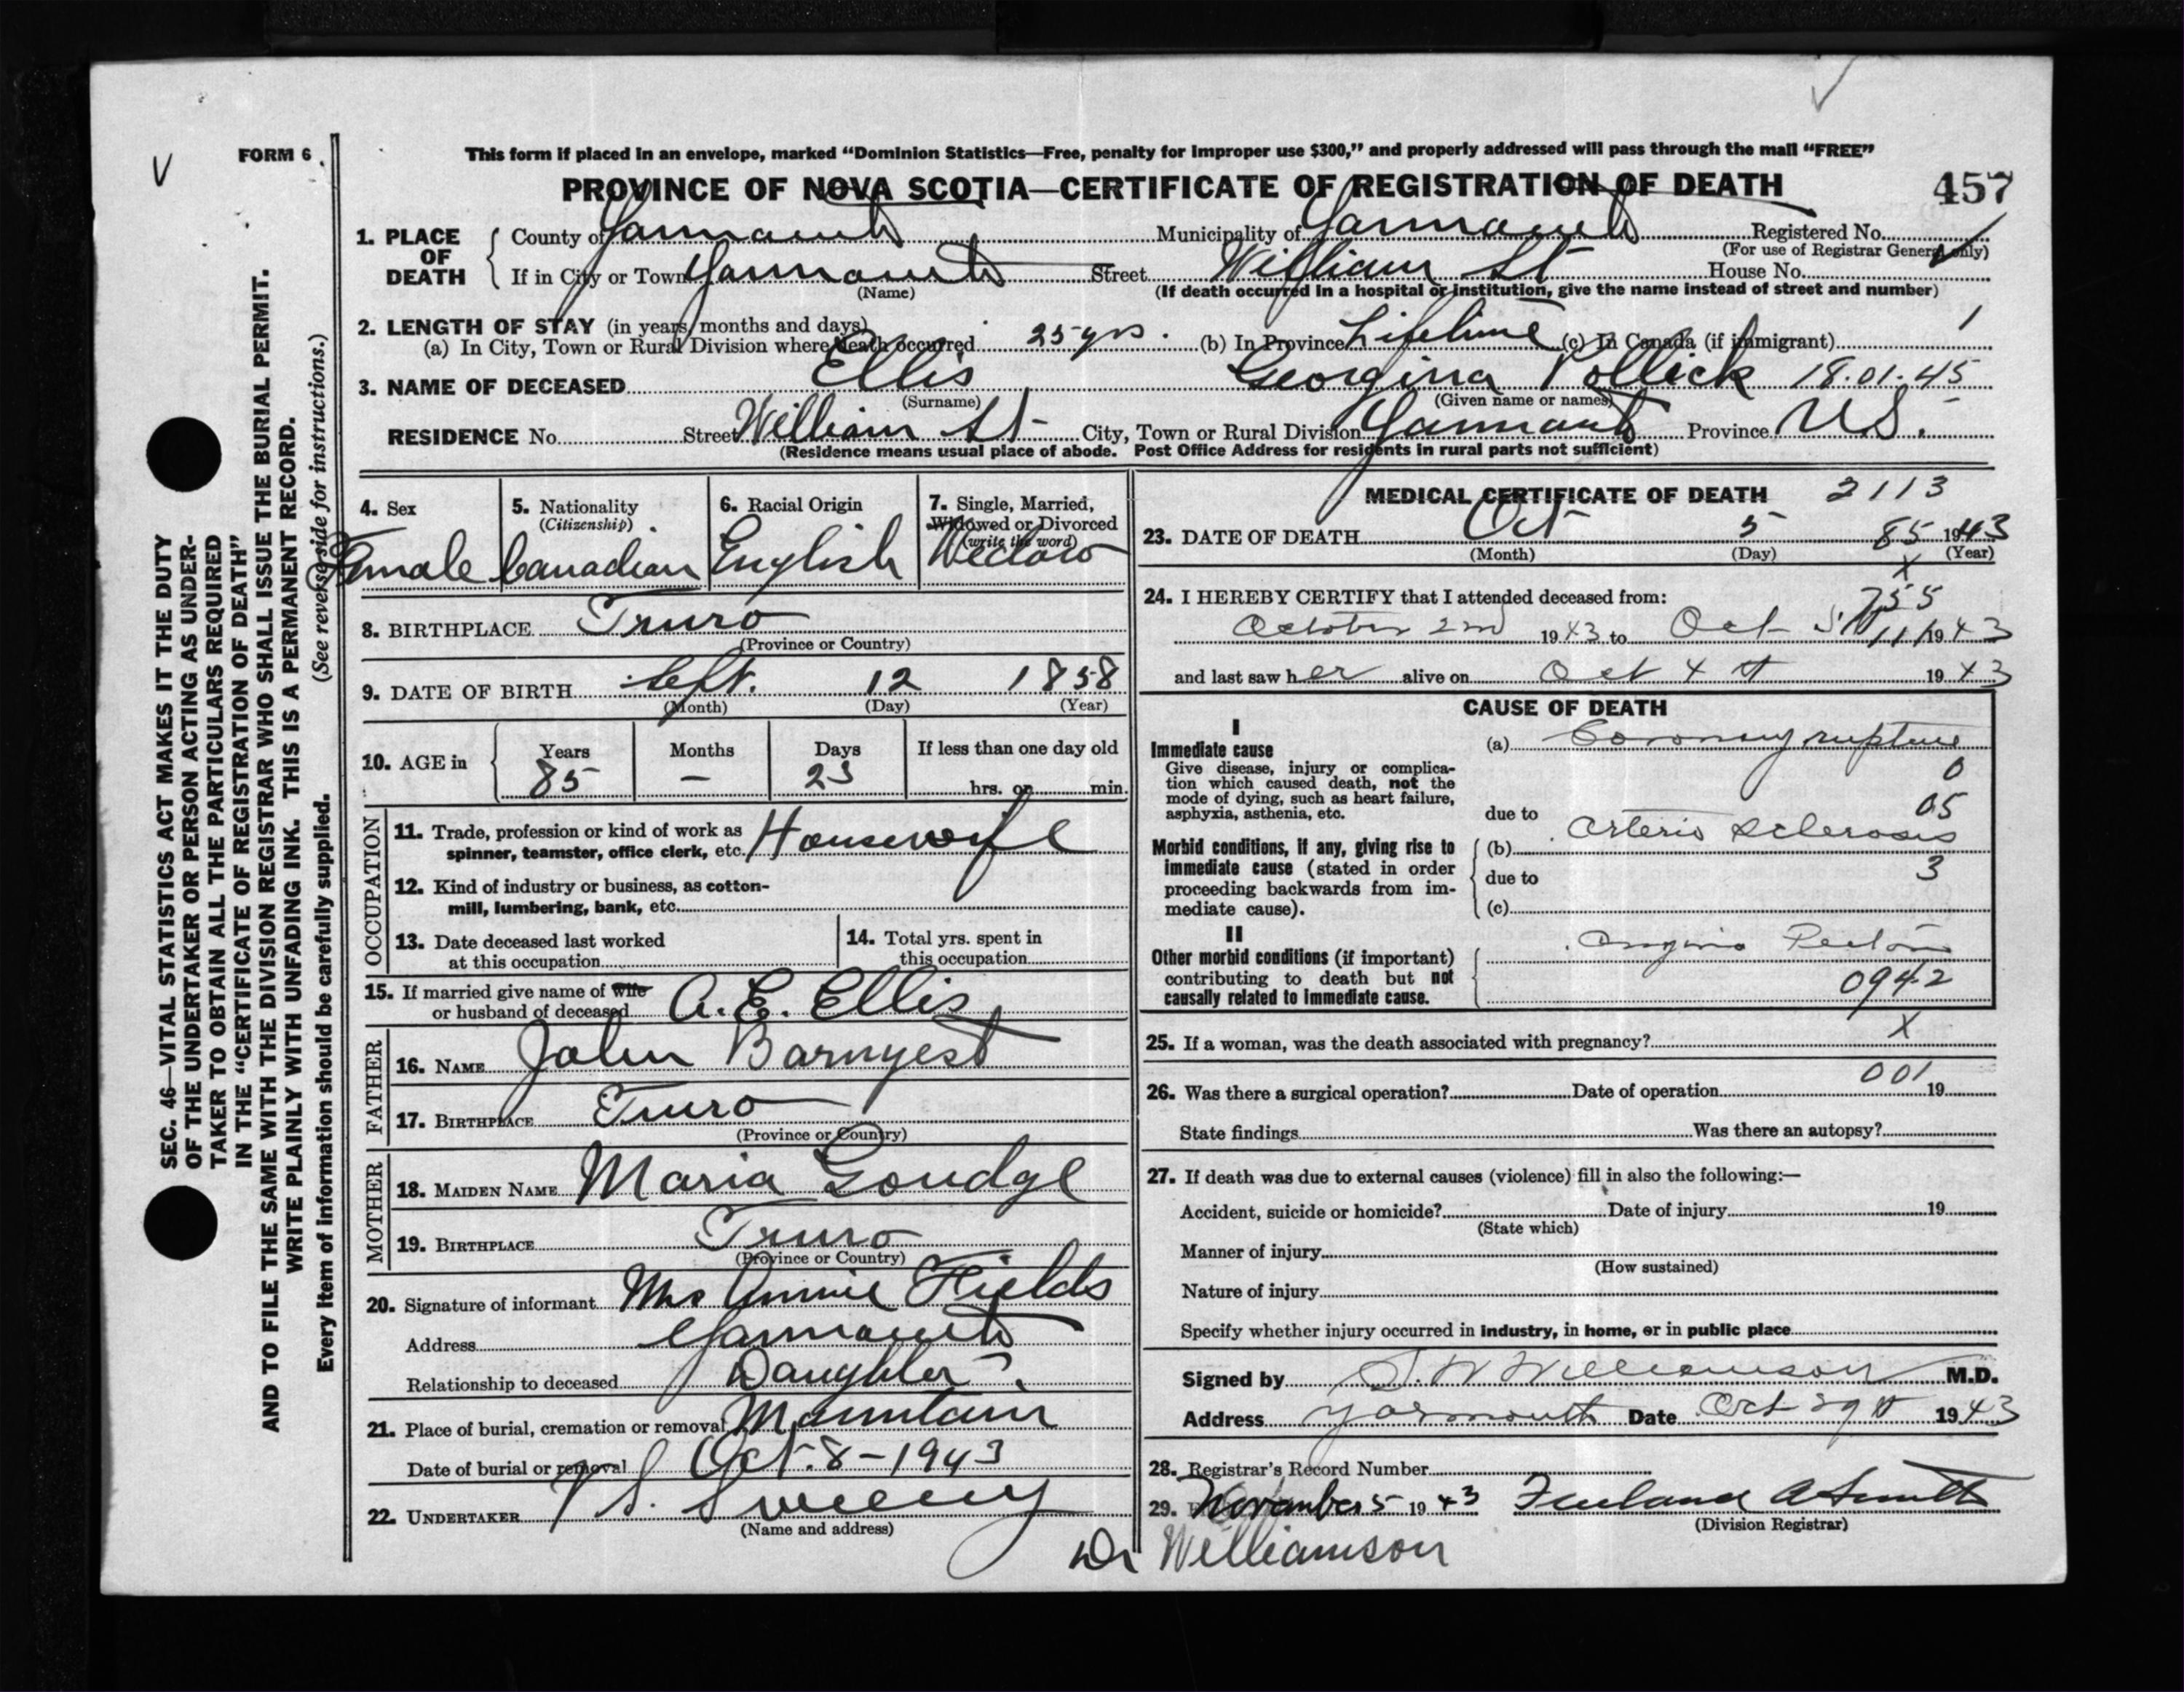 FORM 6
This form if placed in an envelope, marked “Dominion Statistics—Free, penalty for improper use $300,” and properly addressed will pass through the mail “FREE”
PROVINCE OF NOVA SCOTIA—CERTIFICATE OF REGISTRATION OF DEATH 457
1. PLACE OF DEATH
County of Yarmouth Municipality of Yarmouth Registered No.
(For use of Registrar General only)
If in City or Town Yarmouth Street William St House No.
(Name) (If death occurred in a hospital or institution, give the name instead of street and number)
2. LENGTH OF STAY (in years, months and days)
(a) In City, Town or Rural Division where death occurred 25 yrs. (b) In Province Lifetime (c) In Canada (if immigrant) 1
3. NAME OF DECEASED Ellis Georgina Pollick 18.01.45
(Surname) (Given name or names)
RESIDENCE No. Street William St City, Town or Rural Division Yarmouth Province N.S.
(Residence means usual place of abode. Post Office Address for residents in rural parts not sufficient)
4. Sex
Female
5. Nationality
(Citizenship)
Canadian
6. Racial Origin
English
7. Single, Married,
Widowed or Divorced
(write the word)
Widow
8. BIRTHPLACE Truro
(Province or Country)
9. DATE OF BIRTH Sept. 12 1858
(Month) (Day) (Year)
10. AGE in
Years Months Days If less than one day old
85 — 23 hrs. or min.
OCCUPATION
11. Trade, profession or kind of work as
spinner, teamster, office clerk, etc. Housewife
12. Kind of industry or business, as cotton-
mill, lumbering, bank, etc.
13. Date deceased last worked
at this occupation
14. Total yrs. spent in
this occupation
15. If married give name of wife
or husband of deceased A. E. Ellis
FATHER
16. NAME John Barnyest
17. BIRTHPLACE Truro
(Province or Country)
MOTHER
18. MAIDEN NAME Maria Goudge
19. BIRTHPLACE Truro
(Province or Country)
20. Signature of informant Mrs Annie Fields
Address Yarmouth
Relationship to deceased Daughter
21. Place of burial, cremation or removal Mountain
Date of burial or removal Oct. 8 - 1943
22. UNDERTAKER V S. Sweeny
(Name and address)
MEDICAL CERTIFICATE OF DEATH 2113
23. DATE OF DEATH Oct 5 85 1943
(Month) (Day) (Year)
X
24. I HEREBY CERTIFY that I attended deceased from: 755
October 2nd 1943 to Oct 5th 11/1943
and last saw her alive on Oct 4th 1943
CAUSE OF DEATH
I
Immediate cause
Give disease, injury or complica-
tion which caused death, not the
mode of dying, such as heart failure,
asphyxia, asthenia, etc.
(a) Coronary rupture
0
05
due to
Morbid conditions, if any, giving rise to
immediate cause (stated in order
proceeding backwards from im-
mediate cause).
(b) Arterio Sclerosis
due to 3
(c)
II
Other morbid conditions (if important)
contributing to death but not
causally related to immediate cause.
Angina Pectoris
094.2
25. If a woman, was the death associated with pregnancy? X
26. Was there a surgical operation? Date of operation 001 19
State findings Was there an autopsy?
27. If death was due to external causes (violence) fill in also the following:—
Accident, suicide or homicide? Date of injury 19
(State which)
Manner of injury
(How sustained)
Nature of injury
Specify whether injury occurred in industry, in home, or in public place
Signed by S. W Williamson M.D.
Address Yarmouth Date Oct 29th 1943
28. Registrar's Record Number
29. November 5 1943 A Smith
(Division Registrar)
Dr Williamson
SEC. 46—VITAL STATISTICS ACT MAKES IT THE DUTY
OF THE UNDERTAKER OR PERSON ACTING AS UNDER-
TAKER TO OBTAIN ALL THE PARTICULARS REQUIRED
IN THE “CERTIFICATE OF REGISTRATION OF DEATH”
AND TO FILE THE SAME WITH THE DIVISION REGISTRAR WHO SHALL ISSUE THE BURIAL PERMIT.
WRITE PLAINLY WITH UNFADING INK. THIS IS A PERMANENT RECORD.
Every item of information should be carefully supplied. (See reverse side for instructions.)